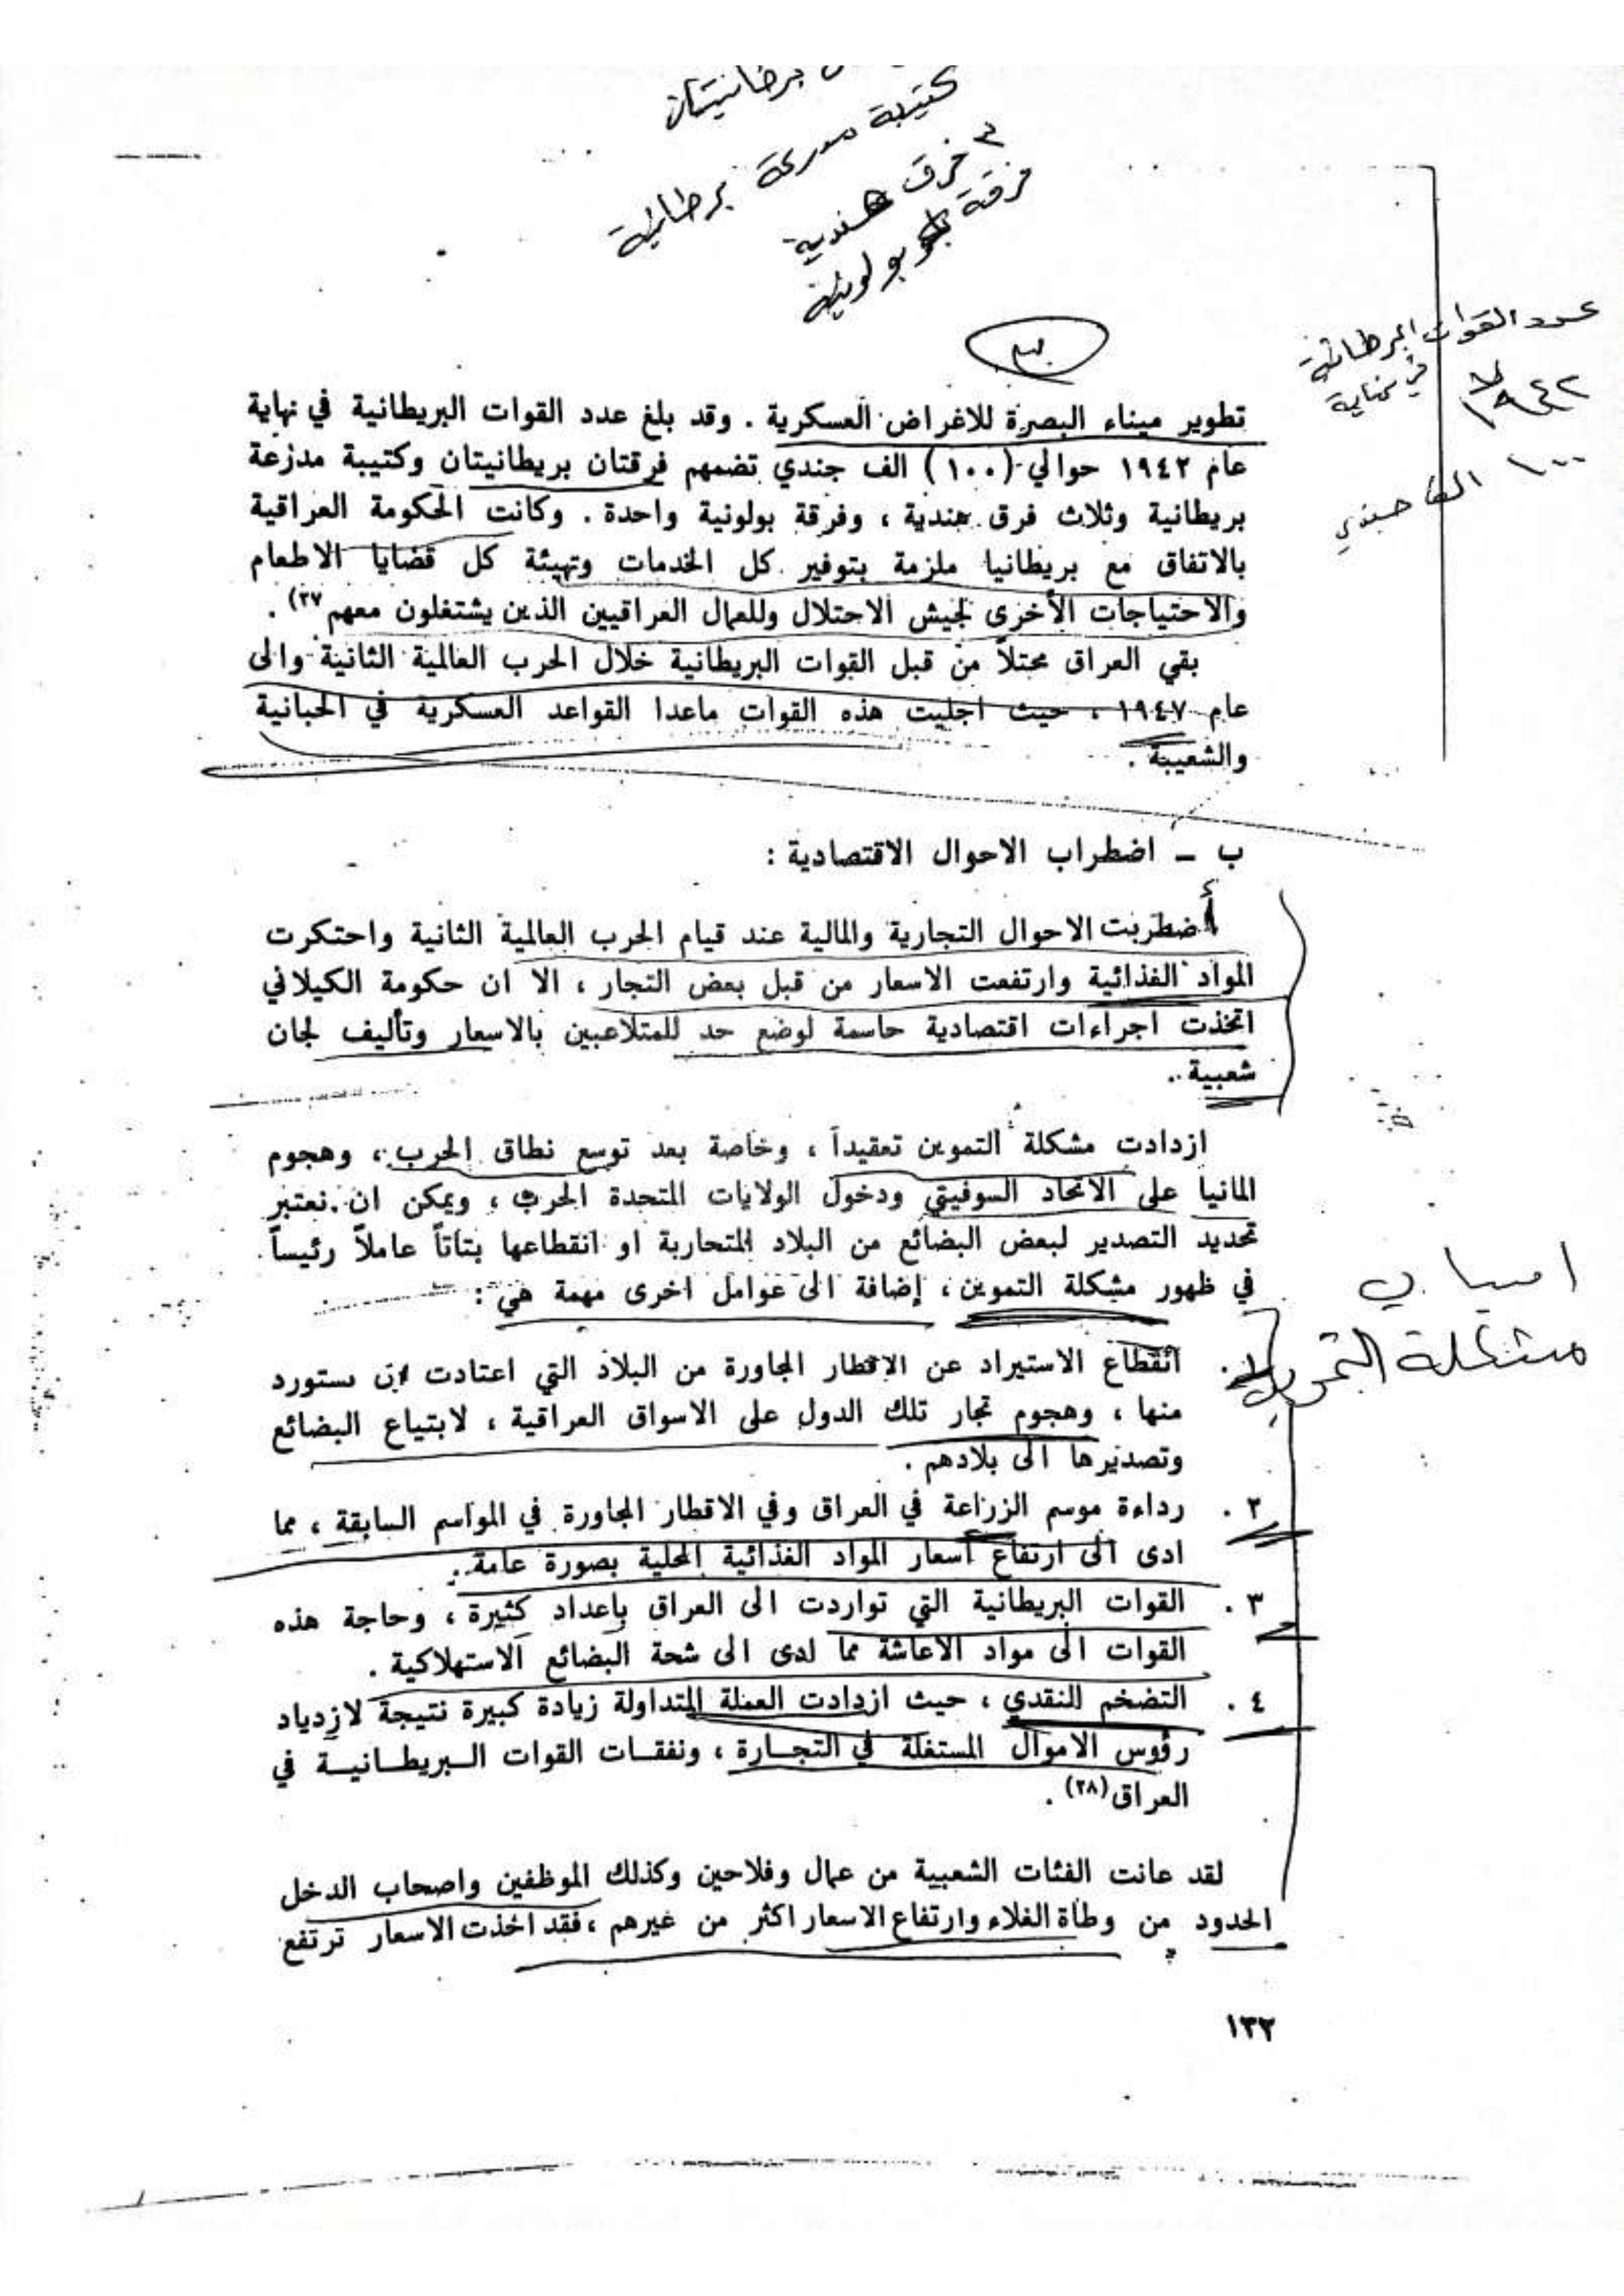 برطانيتان
كتيبة مدرعة برطانية
٣ فرق هندية
فرقة بولونية
عدد القوات البرطانية
في نهاية
١٩٤٢
١٠٠ الف جندي
تطوير ميناء البصرة للاغراض العسكرية . وقد بلغ عدد القوات البريطانية في نهاية
عام ١٩٤٢ حوالي (١٠٠) الف جندي تضمهم فرقتان بريطانيتان وكتيبة مدرعة
بريطانية وثلاث فرق هندية ، وفرقة بولونية واحدة . وكانت الحكومة العراقية
بالاتفاق مع بريطانيا ملزمة بتوفير كل الخدمات وتهيئة كل قضايا الاطعام
والاحتياجات الأخرى لجيش الاحتلال وللعمال العراقيين الذين يشتغلون معهم (٢٧) .
بقي العراق محتلاً من قبل القوات البريطانية خلال الحرب العالمية الثانية والى
عام ١٩٤٧ ، حيث اجليت هذه القوات ماعدا القواعد العسكرية في الحبانية
والشعيبة .
ب – اضطراب الاحوال الاقتصادية :
أضطربت الاحوال التجارية والمالية عند قيام الحرب العالمية الثانية واحتكرت
المواد الغذائية وارتفعت الاسعار من قبل بعض التجار ، الا ان حكومة الكيلاني
اتخذت اجراءات اقتصادية حاسمة لوضع حد للمتلاعبين بالاسعار وتأليف لجان
شعبية .
ازدادت مشكلة التموين تعقيداً ، وخاصة بعد توسع نطاق الحرب ، وهجوم
المانيا على الاتحاد السوفيتي ودخول الولايات المتحدة الحرب ، ويمكن ان نعتبر
تحديد التصدير لبعض البضائع من البلاد المتحاربة او انقطاعها بتاتاً عاملاً رئيساً
في ظهور مشكلة التموين ، إضافة الى عوامل اخرى مهمة هي :
اسباب
مشكلة التموين
١ . انقطاع الاستيراد عن الاقطار المجاورة من البلاد التي اعتادت ان تستورد
منها ، وهجوم تجار تلك الدول على الاسواق العراقية ، لابتياع البضائع
وتصديرها الى بلادهم .
٢ . رداءة موسم الزراعة في العراق وفي الاقطار المجاورة في المواسم السابقة ، مما
ادى الى ارتفاع أسعار المواد الغذائية المحلية بصورة عامة .
٣ . القوات البريطانية التي تواردت الى العراق بإعداد كثيرة ، وحاجة هذه
القوات الى مواد الاعاشة مما لدى الى شحة البضائع الاستهلاكية .
٤ . التضخم النقدي ، حيث ازدادت العملة المتداولة زيادة كبيرة نتيجة لازدياد
رؤوس الاموال المستغلة في التجـارة ، ونفقـات القوات الـبريطـانيـة في
العراق (٢٨) .
لقد عانت الفئات الشعبية من عمال وفلاحين وكذلك الموظفين واصحاب الدخل
الحدود من وطأة الغلاء وارتفاع الاسعار اكثر من غيرهم ، فقد اخذت الاسعار ترتفع
١٣٢